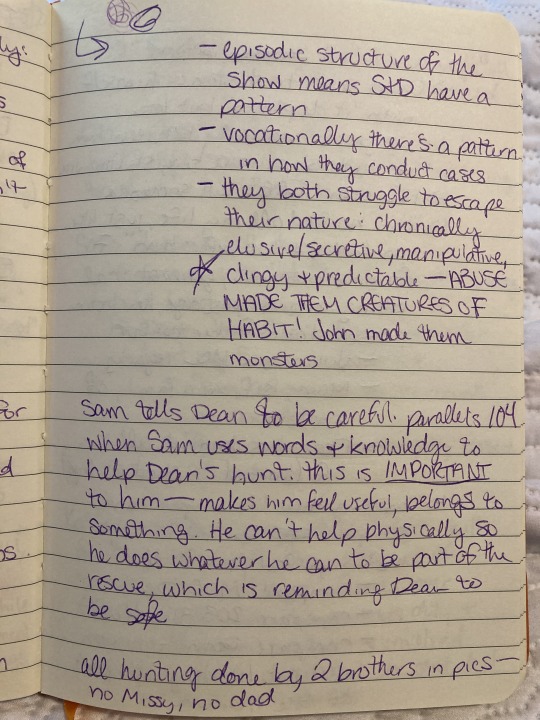 ly:
s
of
it
for
d
os.
n
- episodic structure of the
show means S+D have a
pattern
- vocationally there's a pattern
in how they conduct cases
- they both struggle to escape
their nature: chronically
elusive/secretive, manipulative,
clingy + predictable — ABUSE
MADE THEM CREATURES OF
HABIT! John made them
monsters
Sam tells Dean to be careful. parallels 104
when Sam uses words + knowledge to
help Dean's hunt. this is IMPORTANT
to him — makes him feel useful, belongs to
something. He can't help physically so
he does whatever he can to be part of the
rescue, which is reminding Dean to
be safe
all hunting done by 2 brothers in pics —
no Missy, no dad